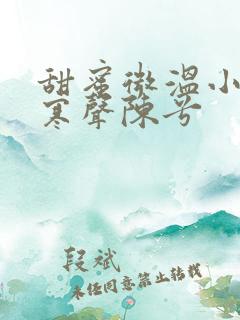 甜蜜微温小
寒聲陳兮
段斌
未经同意禁止转载